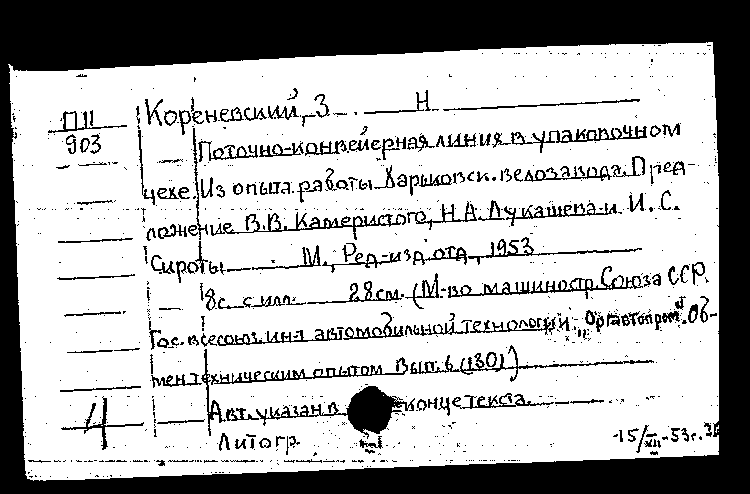 П11
903
Кореневский, З. Н
Поточно-конвейерная линия в упаковочном
цехе. Из опыта работы Харьковск. велозавода. Пред-
ложение В.В. Камеристого, Н.А. Лукашева и И.С.
Сироты М., Ред-изд отд, 1953
8с. с илл. 28см. (М-во машиностр. Союза ССР.
Гос. всесоюз. ин-т автомобильной технологии „Оргавтопром". Об-
мен техническим опытом Вып. 6 (180))
4
Авт. указан в конце текста.
Литогр
-15/XII-53г.